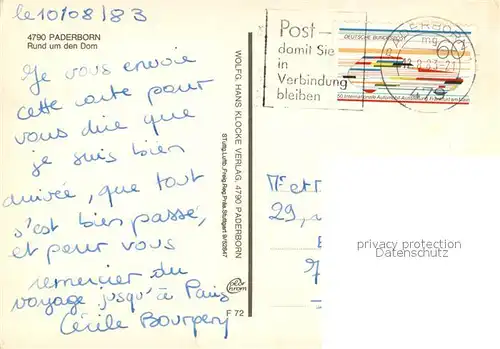 le 10/08/83
4790 PADERBORN
Rund um den Dom
Je vous envoie
cette carte pour
vous dire que
je suis bien
arrivée, que tout
s'est bien passé,
et pour vous
remercier du
voyage jusqu'à Paris
Cécile Bourgery
WOLFG. HANS KLOCKE VERLAG, 4790 PADERBORN
F 72
Post -
damit Sie
in
Verbindung
bleiben
DEUTSCHE BUNDESPOST
PADERBORN
mg
12.8.83-21
479
50. Internationale Automobil-Ausstellung Frankfurt am Main
Mr et
29,
privacy protection
Datenschutz